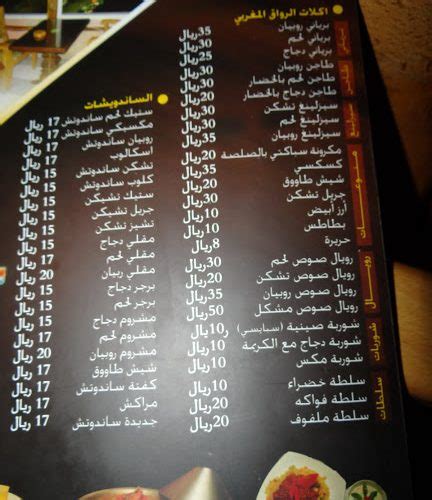 اكلات الرواق المغربي
برياني روبيان 35ريال
برياني لحم 30ريال
برياني دجاج 25ريال
طاجن روبيان 30ريال
طاجن لحم بالخضار 30ريال
طاجن دجاج بالخضار 20ريال
سيزلينغ تشكن 30ريال
سيزلينغ لحم 30ريال
سيزلينغ روبيان 35ريال
منوعات
مكرونة سباكتي بالصلصة 20ريال
كسكسي 35ريال
شيش طاووق 20ريال
جريل تشكن 30ريال
أرز أبيض 10ريال
بطاطس 10ريال
حريرة 8ريال
رويال
رويال صوص لحم 30ريال
رويال صوص تشكن 20ريال
رويال صوص روبيان 35ريال
رويال صوص مشكل 50ريال
شوربات
شوربة صينية (سبايسي) 10ريال
شوربة دجاج مع الكريمة 10ريال
شوربة مكس 10ريال
سلطات
سلطة خضراء 10ريال
سلطة فواكه 20ريال
سلطة ملفوف 20ريال
الساندويشات
ستيك لحم ساندوتش 17 ريال
مكسيكي ساندوتش 17 ريال
روبيان ساندوتش 17 ريال
اسكالوب 17 ريال
تشكن ساندوتش 15 ريال
كلوب ساندوتش 15 ريال
ستيك تشيكن 15 ريال
جريل تشيكن 15 ريال
تشيز تشكن 15 ريال
مقلي دجاج 15 ريال
مقلي لحم 17 ريال
مقلي ربيان 20 ريال
برجر دجاج 15 ريال
برجر لحم 15 ريال
مشروم دجاج 15 ريال
مشروم لحم 17 ريال
مشروم روبيان 20 ريال
شيش طاووق 17 ريال
كفتة ساندوتش 17 ريال
مراكش 17 ريال
جديدة ساندوتش 17 ريال